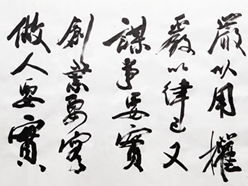 嚴以用權
嚴以律己又
謀事要實
創業要實
做人要實